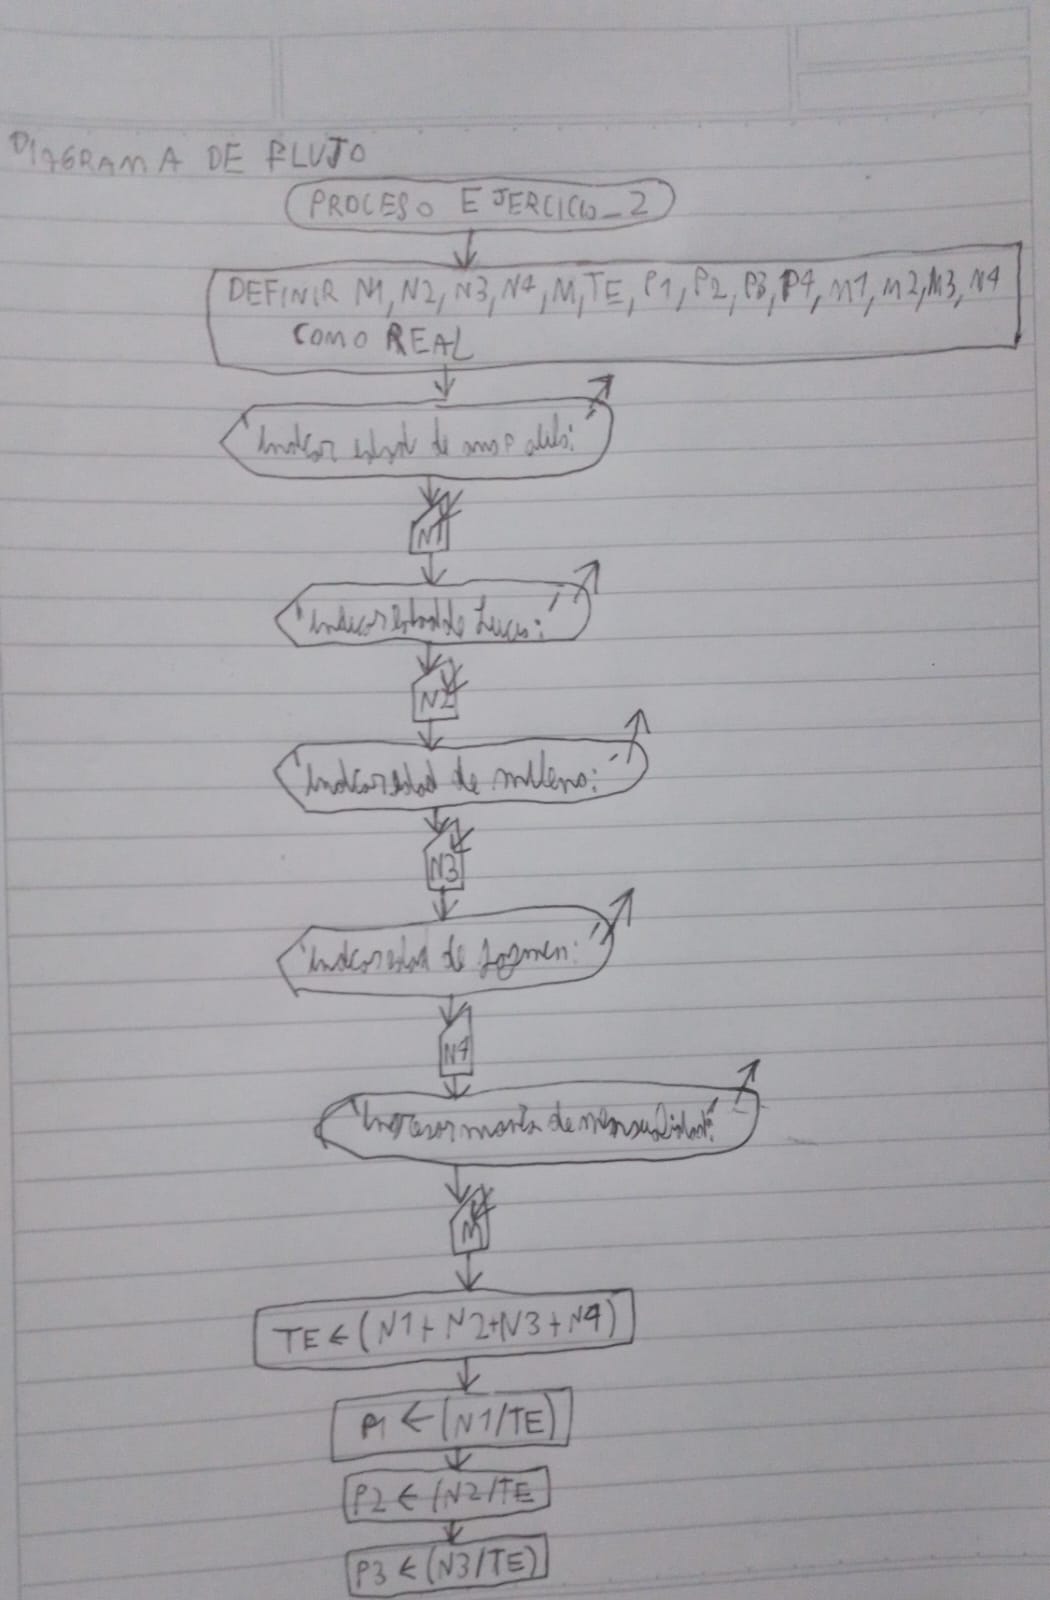 DIAGRAMA DE FLUJO
PROCESO EJERCICIO_2
DEFINIR N1, N2, N3, N4, M, TE, P1, P2, P3, P4, M1, M2, M3, M4
COMO REAL
'Indicar edad de
N1
'Indicar edad de Lucas:'
N2
'Indicar edad de mileno:'
N3
'Indicar edad de Jazmen:'
N4
'Ingresar monto de mensualidad:'
M
TE ← (N1 + N2 + N3 + N4)
P1 ← (N1/TE)
P2 ← (N2/TE
P3 ← (N3/TE)